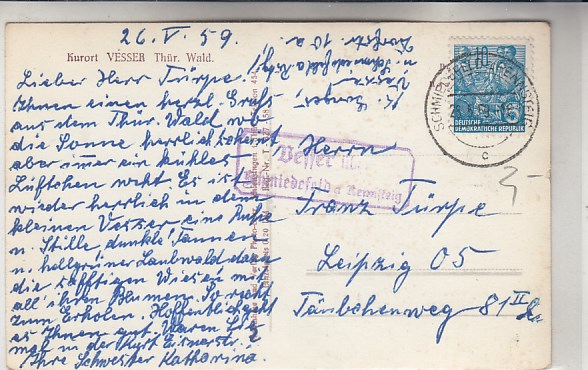 26. V. 59.
Kurort VESSER Thür. Wald.
Lieber Herr Türpe!
Ihnen einen herzl. Gruß
aus dem Thür. Wald wo
die Sonne herrlich scheint,
aber immer ein kühles
Lüftchen weht. Es ist
wieder herrlich in dem
kleinen Vesser eine Ruhe
u. Stille dunkle Tannen
u. hellgrüner Laubwald dann
die saftigen Wiesen mit
all' ihren Blumen. So recht
zum Erholen. Hoffentlich geht
es Ihnen gut. Waren Sie
mal in der Kurt Eisnerstr.?
Ihre Schwester Katharina.
Vesser
Schmiedefeld a Rennsteig
DEUTSCHE
DEMOKRATISCHE REPUBLIK
c
Herrn
Franz Türpe
Leipzig O5
Täubchenweg 81 II